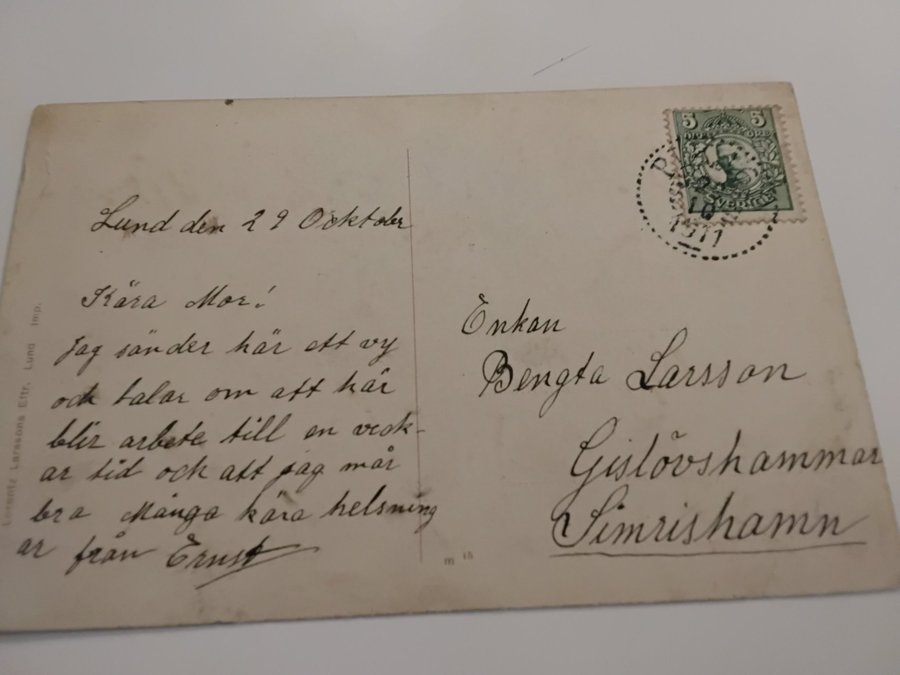 Lund den 29 Ocktober
Kära Mor!
Jag sänder här ett vy
och talar om att här
blir arbete till en veck-
ar tid ock att jag mår
bra Många kära helsning
ar från Ernst
Enkan
Bengta Larsson
Gislövshammar
Simrishamn
5 5
SVERIGE
10
1911
Lorentz Larssons Eftr. Lund Imp.
m 15